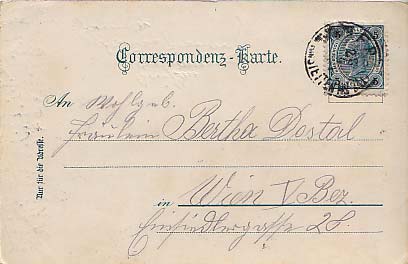 Correspondenz-Karte.
An Wohlgeb.
Fräulein Bertha Dostal
in Wien V Bez.
Einsiedlergasse 28.
Nur für die Adresse.